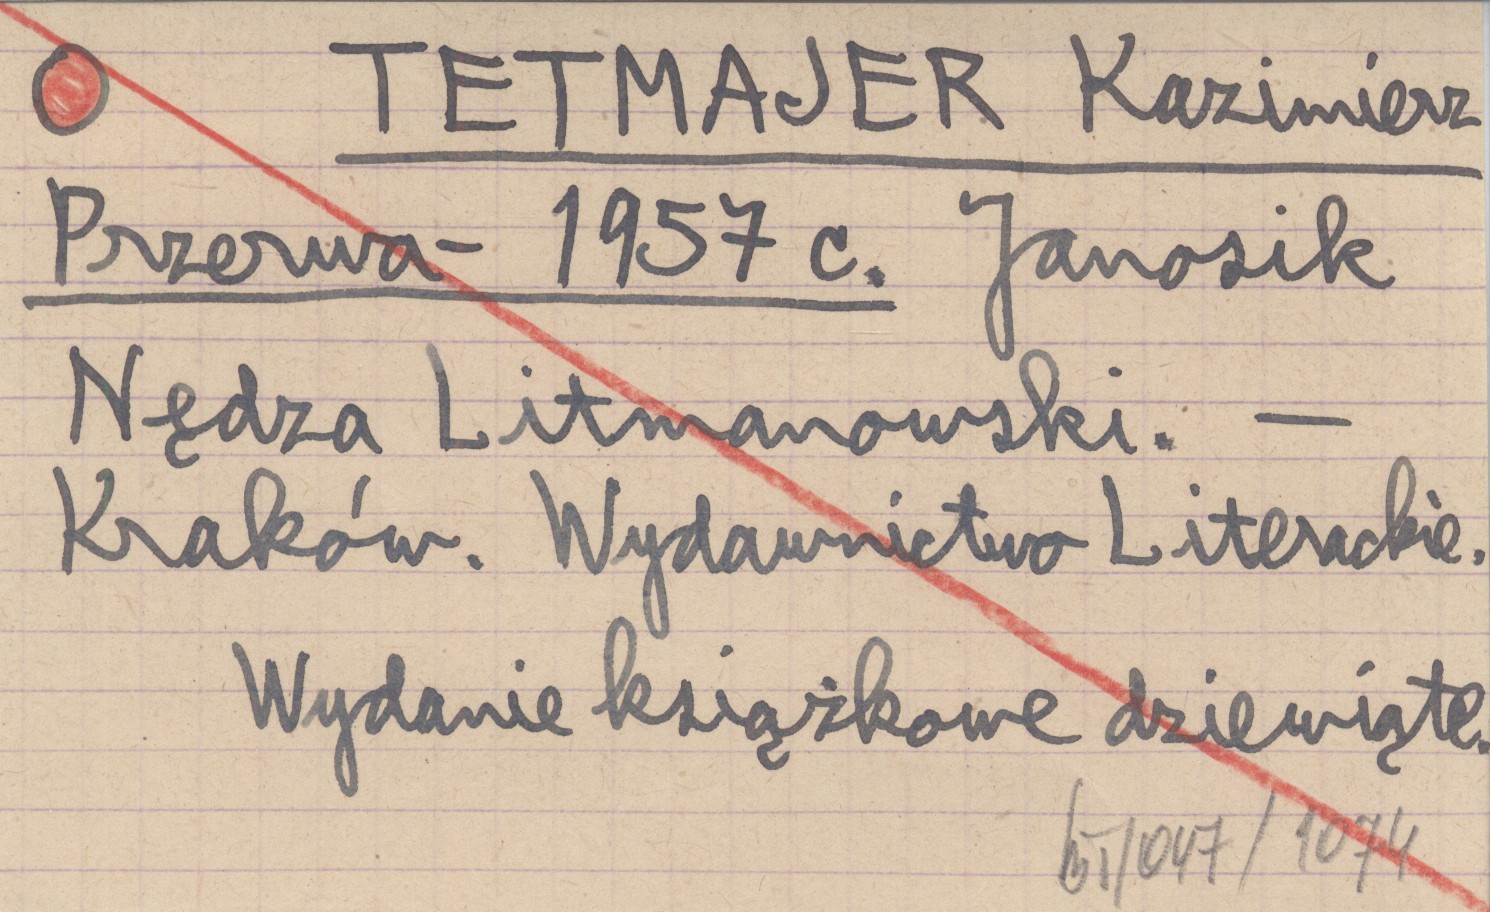 TETMAJER Kazimierz
Przerwa- 1957 c. Janosik
Nędza Litmanowski. —
Kraków. Wydawnictwo Literackie.
Wydanie książkowe dziewiąte.
/047/1074